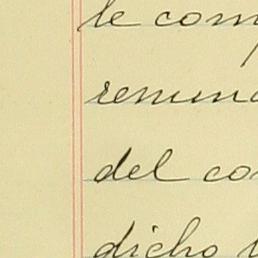 le com
renun
del co
dicho